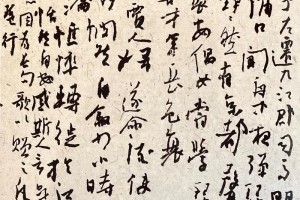 予左遷九江郡司馬明
浦口聞舟中夜彈琵
錚然有京都聲
長安倡女嘗學琵
才年長色衰
賈人婦遂命酒使
憫然自敘少小時
憔悴轉徙於江
恬然自安感斯人言是
因為長句歌以贈之
琶行